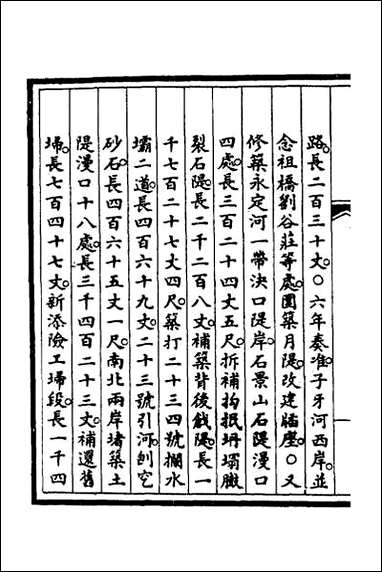 路長二百三十丈○六年奏准子牙河西岸並
念祖橋劉谷莊等處圈築月隄改建牐壩○又
修築永定河一帶決口隄岸石景山石隄漫口
四處長三百二十四丈五尺拆補拘抿坍塌臌
裂石隄長二千二百八丈補築背後戧隄長一
千七百二十七丈四尺築打二十三四號攔水
壩二道長四百六十九丈二十三號引河刨空
砂石長四百六十五丈一尺南北兩岸堵築土
隄漫口十八處長三千四百二十三丈補還舊
埽長七百四十七丈新添險工埽段長一千四